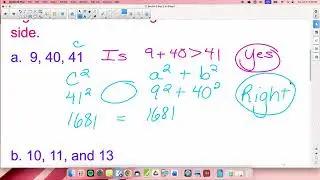 side.
c
a. 9, 40, 41 Is 9+40>41 Yes
c² a² + b²
41² 9² + 40² Right
1681 = 1681
b. 10, 11, and 13